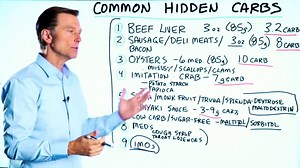 COMMON HIDDEN CARBS
1 BEEF LIVER 3 oz (85g) 3.2 CARB
2 SAUSAGE/DELI MEATS/ 3oz (85g) 8 CARB
BACON
3 OYSTERS - 6 MED (85g) 10 CARB
MUSSELS/SCALLOPS/CLAMS
4 IMITATION CRAB - 7g CARB
- POTATO STARCH
- TAPIOCA
/MONK FRUIT/TRUVIA/SPLENDA - DEXTROSE
MALTODEXTRIN
SAUCE - 3-9g CARB
LOW CARB/SUGAR-FREE - MALTITOL/SORBITOL
8 MEDS - COUGH SYRUP
THROAT LOZENGES
9 IMOs